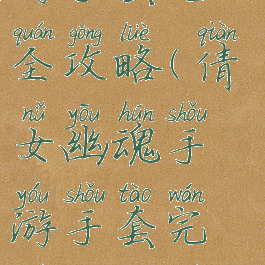 quán gōng lüè qiàn
全攻略(倩
nǚ yōu hún shǒu
女幽魂手
yóu shǒu tào wán
游手套完